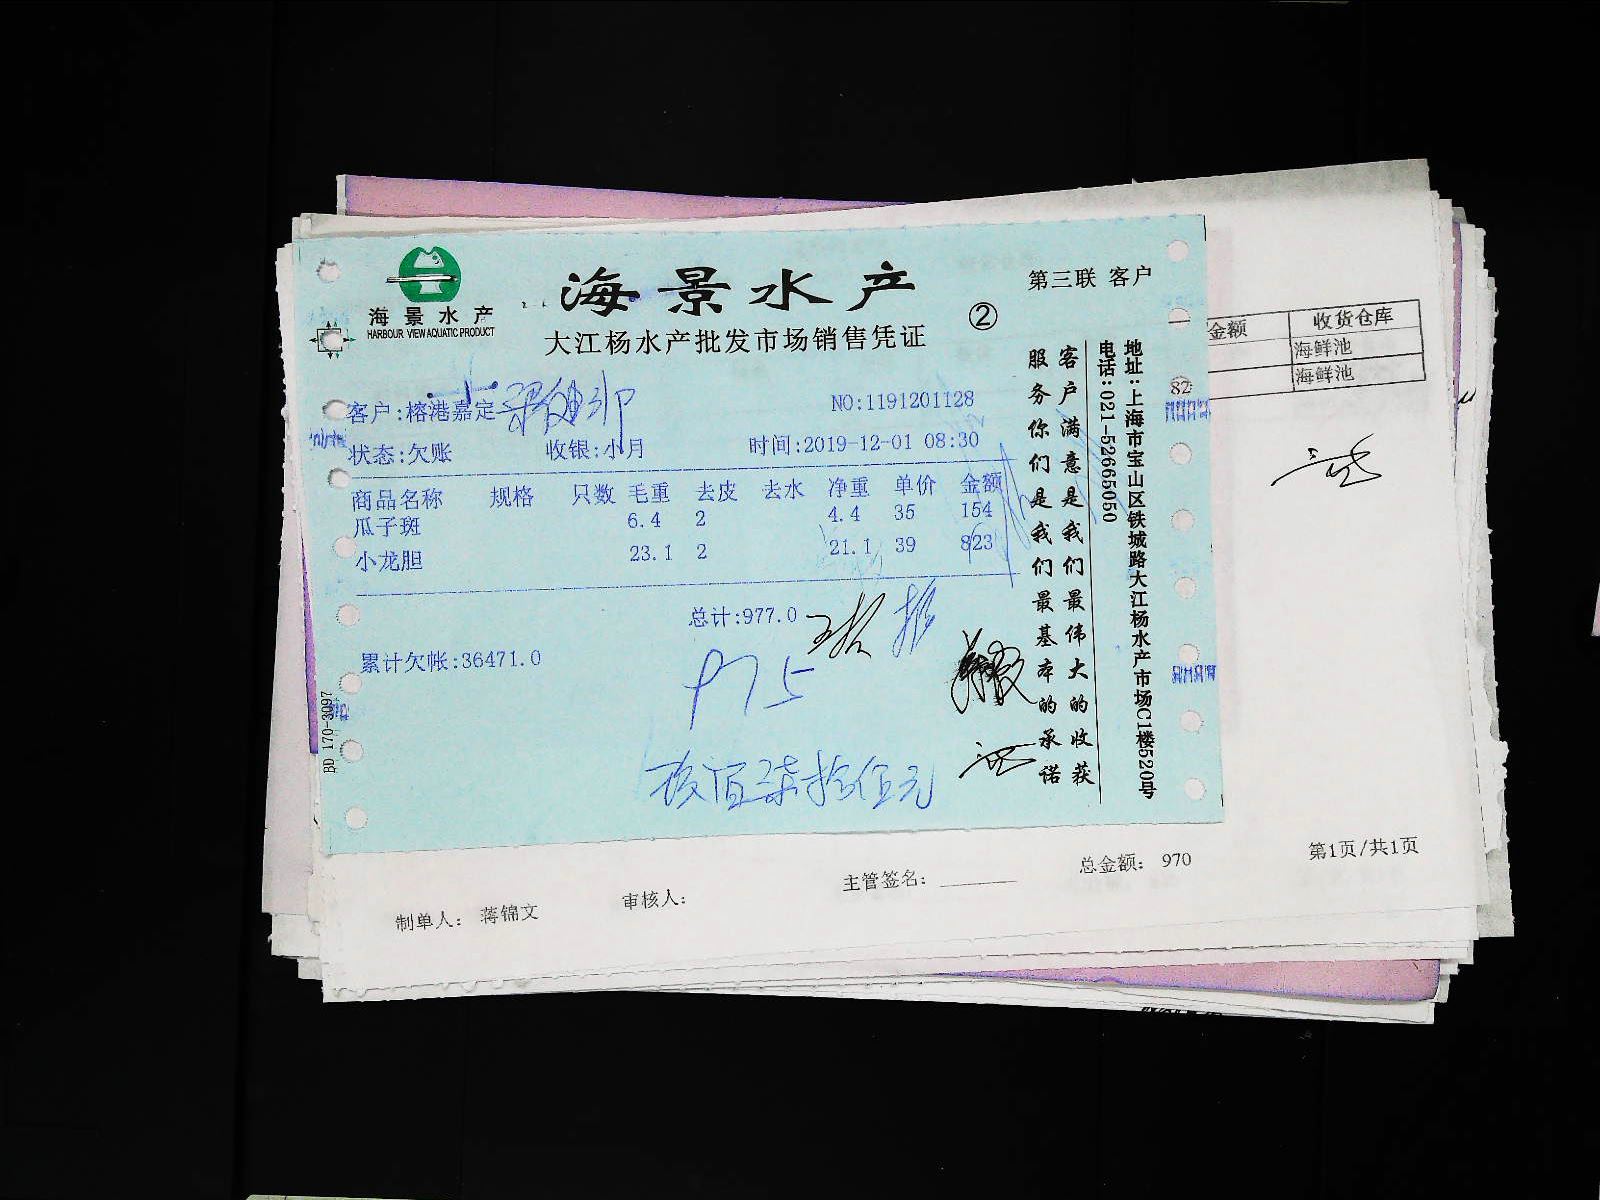 海景水产
HARBOUR VIEW AQUATIC PRODUCT
海景水产
大江杨水产批发市场销售凭证
②
第三联 客户
客户:榕港嘉定
NO:1191201128
状态:欠账 收银:小月 时间:2019-12-01 08:30
商品名称 规格 只数 毛重 去皮 去水 净重 单价 金额
瓜子斑 6.4 2 4.4 35 154
小龙胆 23.1 2 21.1 39 823
总计:977.0
累计欠帐:36471.0
975
玖佰柒拾伍元
客户满意是我们最伟大的收获
服务你们是我们最基本的承诺
地址:上海市宝山区铁城路大江杨水产市场C1楼520号
电话:021-52665050
BD 170-3097
金额 收货仓库
海鲜池
82 海鲜池
制单人: 蒋锦文 审核人: 主管签名: 总金额: 970 第1页/共1页